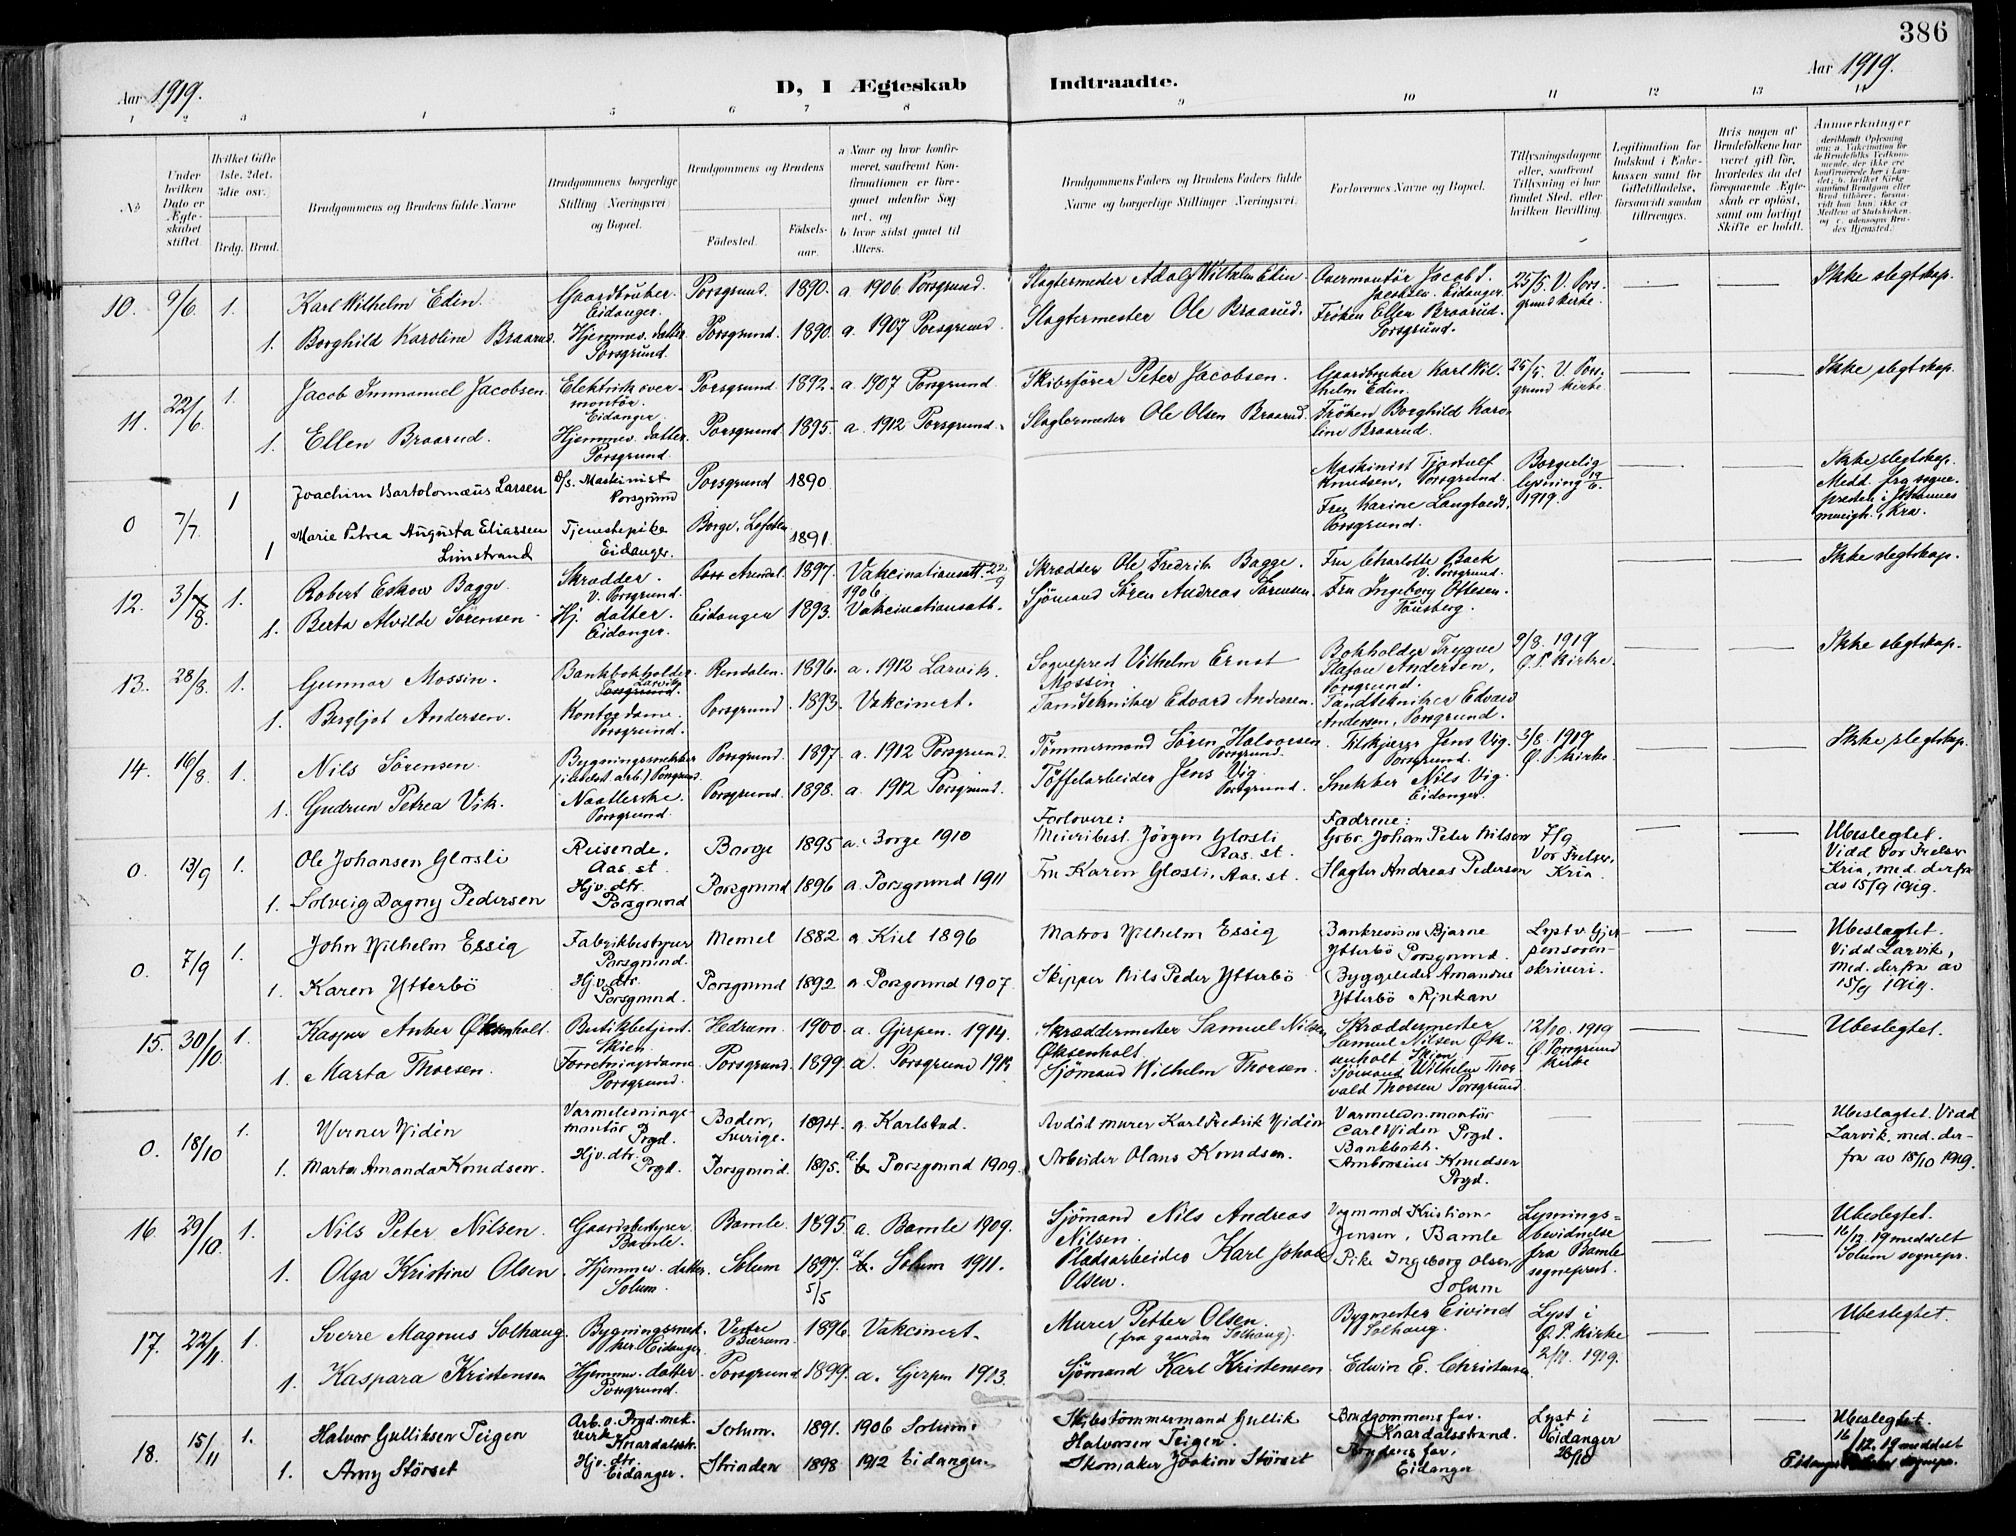 386
Aar 1919.
D, I Ægteskab Indtraadte.
Aar 1919.
1 2 3 4 5 6 7 8 9 10 11 12 13 14
No
Under hvilken Dato er Ægteskabet stiftet
Hvilket Gifte 1ste. 2det. 3die osv.)
Brdg. Brud.
Brudgommens og Brudens fulde Navne
Brudgommens borgerlige Stilling (Næringsvei) og Bopæl.
Brudgommens og Brudens
Födested. Födsels-aar.
a Naar og hvor konfirmeret, saafremt Konfirmationen er foregaaet udenfor Sognet, og
b hvor sidst gaaet til Alters.
Brudgommens Faders og Brudens Faders fulde Navne og borgerlige Stillinger (Næringsvei).
Forlovernes Navne og Bopæl.
Tillysningsdagene eller, saafremt Tillysning ei har fundet Sted, efter hvilken Bevilling.
Legitimation for Indskud i Enkekassen samt for Giftetilladelse, forsaavidt saadan tiltrænges.
Hvis nogen af Brudefolkene har været gift før, hvorledes da det foregaaende Ægteskab er oplöst, samt om lovligt Skifte er holdt.
Anmerkninger
10. 9/6 1. Karl Wilhelm Edin. Gaardbruker. Eidanger. Porsgrund. 1890. a 1906 Porsgrund. Slagtermester Adolf Wilhelm Edin. Overmontör Jacob I. Jacobsen. Eidanger. 25/5. V. Porsgrund kirke. Ikke slegtskap.
1. Borghild Karoline Braarud. Hjemmev. datter. Porsgrund. Porsgrund. 1890. a. 1907 Porsgrund. Slagtermester Ole Braarud. Fröken Ellen Braarud. Porsgrund.
11. 22/6 1. Jacob Immanuel Jacobsen. Elektrisk overmontör. Eidanger. Porsgrund 1892. a. 1907 Porsgrund. Skibsförer Peter Jacobsen. Gaardbruker Karl Wilhelm Edin. 25/5. V. Porsgrund kirke. Ikke slegtskap.
1. Ellen Braarud. Hjemmev. datter. Porsgrund. Porsgrund 1895. a. 1912 Porsgrund. Slagtermester Ole Olsen Braarud. Fröken Borghild Karoline Braarud.
0 7/7. 1 Joachim Bartolomæus Larsen D/s. Maskinist Porsgrund Porsgrund 1890 Maskinist Tjostulf Knudsen, Porsgrund. Borgerlig lysning 19/6. 1919. Ikke slegtskap. Medd. fra sognepresten i Johannes menigh., Kra.
1 Marie Petrea Augusta Eliassen Linstrand Tjenestepike Eidanger. Borge, Lofoten 1891. Fru Karine Langtvedt, Porsgrund.
12. 3/8. 1. Robert Eskow Bagge. Skrædder. V. Porsgrund. Arendal. 1897. Vakcinationsatt. 22/9 1906 Skrædder Ole Fredrik Bagge. Fru Charlotte Back V. Porsgrund. Ikke slegtskap.
1. Berta Alvilde Sörensen. Hj. datter. Eidanger. Eidanger 1893. Vakcinationsatt. Sjömand Sören Andreas Sörensen. Fru Ingeborg Ottesen. Tönsberg.
13. 28/8. 1. Gunnar Mossin. Bankbokholder. Larvik Rendalen. 1896. a. 1912 Larvik. Sogneprest Vilhelm Ernst Mossin Bokholder Trygve Olafsen Andersen, Porsgrund. 9/8. 1919 Ø. P. kirke. Ikke slegtskap.
1. Bergljot Andersen. Kontordame. Porsgrund. Porsgrund. 1893. Vakcinert. Tandtekniker Edvard Andersen. Tandtekniker Edvard Andersen, Porsgrund.
14. 16/8. 1. Nils Sörensen. Bygningssnekker Porsgrund. 1897. a. 1912 Porsgrund. Tömmermand Sören Halvorsen. Porsgrund. Jens Vig. Porsgrund. 3/8. 1919 Ø. P. kirke. Ikke slegtskap.
1. Gudrun Petrea Vik. Porsgrund. Porsgrund. 1898. a. 1912 Porsgrund. Töffelarbeider Jens Vig. Porsgrund. Snekker Nils Vig. Eidanger.
Forlovere: Fædrene:
0. 13/9 1. Ole Johansen Glosli Reisende, Aas. st. Borge 1895 a. Borge 1910 Meieribest. Jörgen Glosli Aas. st. Grbr. Johan Peter Nilsen 7/9 Vor Frelser, Kria. Ubeslegtet. Vidd Vor Frelser Kria, med. derfra av 15/9 1919.
1. Solveig Dagny Pedersen Hjv. dtr. Porsgrund Porsgrund 1896 a. Porsgrund 1911 Fru Karen Glosli, Aas. st. Slagter Andreas Pedersen
0. 7/9 1. John Wilhelm Essig Fabrikbestyrer Porsgrund. Memel 1882 a. Kiel 1896 Matros Wilhelm Essig Bankrevisor Bjarne Ytterbö Porsgrund. Lyst v. Gjerpen sorenskriveri. Ubeslegtet. Vidd Larvik, med. derfra av 15/9 1919.
1. Karen Ytterbö Hjv. dtr. Porsgrund. Porsgrund 1892 a. Porsgrund 1907. Skipper Nils Peder Ytterbö Byggeleder Amandus Ytterbö Rjukan
15. 30/10. 1. Kasper Anber Øksenholt. Butikbetjent. Skien. Hedrum. 1900. a. Gjerpen. 1914. Skræddermester Samuel Nilsen Øksenholt. Skræddermester Samuel Nilsen Øksenholt Skien. 12/10. 1919 Ø. Porsgrund kirke Ubeslegtet.
1. Marta Thorsen. Forretningsdame. Porsgrund. Porsgrund. 1899. a. Porsgrund Sjömand Wilhelm Thorsen. Sjömand Wilhelm Thorvald Thorsen Porsgrund.
0. 18/10 1. Werner Widén Varmeledningsmontör Prgd. Boden, Sverige. 1894. a. Karlstad. Avdöd murer Karl Fredrik Widén Varmeledn. montör Carl Widen Prgd. Ubeslegtet. Vidd Larvik, med. derfra av 18/10 1919.
1. Marta Amanda Knudsen. Hjv. dtr. Prgd. Porsgrund. 1895. a. Porsgrund 1909. Arbeider Olaus Knudsen. Bankbokh. Ambrosius Knudsen Prgd.
16. 29/10. 1. Nils Peter Nilsen. Gaardsbestyrer Bamle. Bamle. 1895. a. Bamle 1909. Sjömand Nils Andreas Nilsen. Vognmand Kristian Jensen, Bamle Lysningsbevidnelse fra Bamle sogneprest. Ubeslegtet. 16/12. 19 meddelt Solum sognepr.
1. Olga Kristine Olsen. Hjemmev. datter. Solum. Solum 1897. 5/5 a. Solum 1911. Pladsarbeider Karl Johan Olsen. Pike Ingeborg Olsen Solum
17. 22/11. 1. Sverre Magnus Solhaug. Bygningssnekker. Eidanger. Vestre Bærum. 1896. Vakcinert. Murer Petter Olsen. (fra gaarden Solhaug). Bygmester Eivind Solhaug. Lyst i Ø. P. kirke 2/11. 1919. Ubeslegtet.
1. Kaspara Kristensen Hjemmev. datter Porsgrund. Porsgrund 1899. a. Gjerpen 1913. Sjömand Karl Kristensen. Edwin E. Christensen
18. 15/11 1. Halvor Gulliksen Teigen Arb. v. Prgd. mek. verk. Knardalsstr. Solum. 1891. 1906 Solum. Skibstömmermand Gullik Halvorsen Teigen. Brudgommens far. Knardalsstrand. Lyst i Eidanger 26/10 Ubeslegtet. 16/12. 19 meddelt Eidanger sognepr.
1. Amy Störset Hjv. dtr. Eidanger. Strinden 1898 1912 Eidanger Skomaker Joakim Störset Brudens far, Eidanger